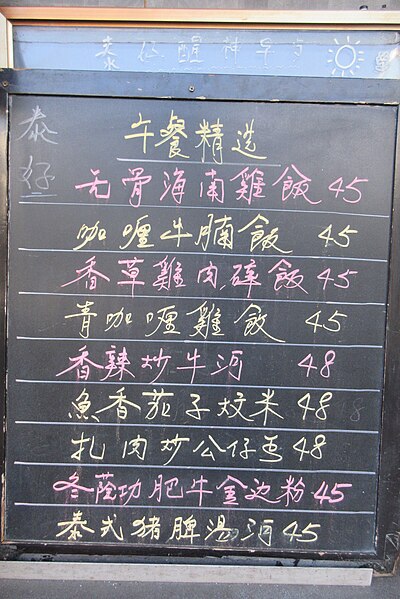 泰仔醒神早
泰仔
午餐精选
无骨海南雞飯 45
咖喱牛腩飯 45
香草雞肉碎飯 45
青咖喱雞飯 45
香辣炒牛河 48
魚香茄子炆米 48
扎肉炒公仔面 48
冬蔭功肥牛金边粉 45
泰式猪脾湯河 45